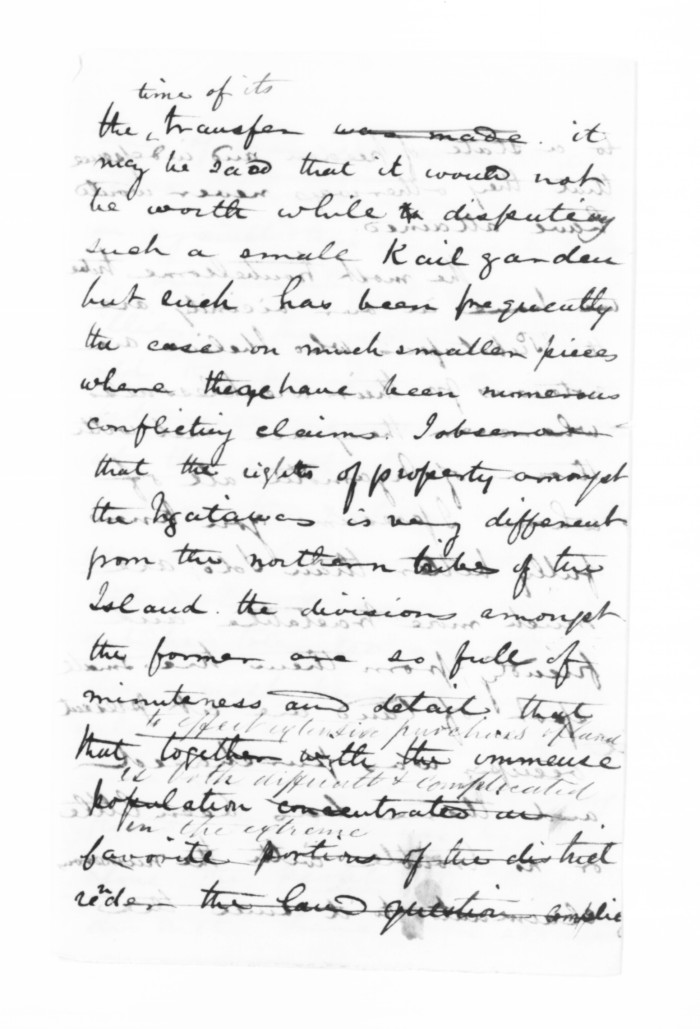 time of its
the, transfer was made. it
may be said that it would not
be worth while to disputing
such a small Kail garden
but such has been frequently
the case on much smaller pieces
where there have been numerous
conflicting claims. I observe
that the rights of property amongst
the Ngatiawas is very different
from the northern tribes of the
Island. the divisions amongst
the former are so full of
minuteness and detail that
to effect extensive purchases of land
that together with the immense
is both difficult & complicated
population concentrated in
in the extreme
favorite portions of the district
render the land question complic